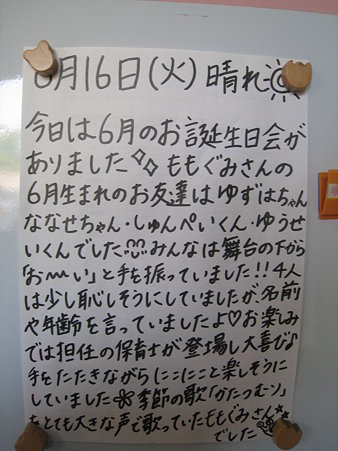 6月16日(火) 晴れ
今日は6月のお誕生日会が
ありました ももぐみさんの
6月生まれのお友達はゆずはちゃん
ななせちゃん・しゅんぺいくん・ゆうせ
いくんでした みんなは舞台の下から
「お〜い」と手を振っていました!!4人
は少し恥しそうにしていましたが、名前
や年齢を言っていましたよ♡お楽しみ
では担任の保育士が登場し大喜び♪
手をたたきながらにこにこと楽しそうに
していました 季節の歌「かたつむり」
をとても大きな声で歌っていたももぐみさん
でした